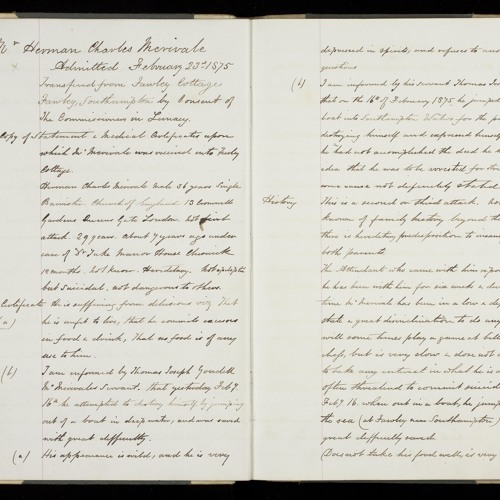 Mr Herman Charles Merivale
Admitted February 23rd 1875
Transferred from Fawley Cottage
Fawley, Southampton by Consent of
The Commissioners in Lunacy.
Copy of Statement & Medical Certificates upon
which Mr Merivale was received into Fawley
Cottage.
Herman Charles Merivale male 36 years Single
Barrister Church of England 13 Cornwall
Gardens Queens Gate London. Not first
attack. 29 years. About 7 years ago under
care of Dr Tuke Manor House Chiswick
10 months. Not know. Hereditary. Not epileptic
but Suicidal. not dangerous to others.
Certificate he is suffering from delusions viz That
(a) he is unfit to live, that he commits excesses
in food & drink, That no food is of any
use to him.
(b) I am informed by Thomas Joseph
Mr Merivale's Servant. that yesterday Feby
16th he attempted to destroy himself by jumping
out of a boat in deep water, and was saved
with great difficulty.
(a) His appearance is wild, and he is very
depressed in spirits, and refuses to
questions
(b) I am informed by his servant Thomas
that on the 16th of February 1875 he jumped
boat into Southampton Water for the
destroying himself and expressed himself
he had not accomplished the deed he had
idea that he was to be arrested for
was cause not definitely stated
History This is a second or third attack.
known of family history beyond
there is hereditary predisposition to
both parents.
The Attendant who came with him
he has been with him for six weeks &
time Mr Merivale has been in a low &
state a great disinclination to do any
will some times play a game at
chess, but is very slow & does not
to take any interest in what he is
often threatened to commit suicide
Feby 16. when out in a boat, he jumped
the sea (at Fawley near Southampton)
great difficulty saved
(Does not take his food well, is very